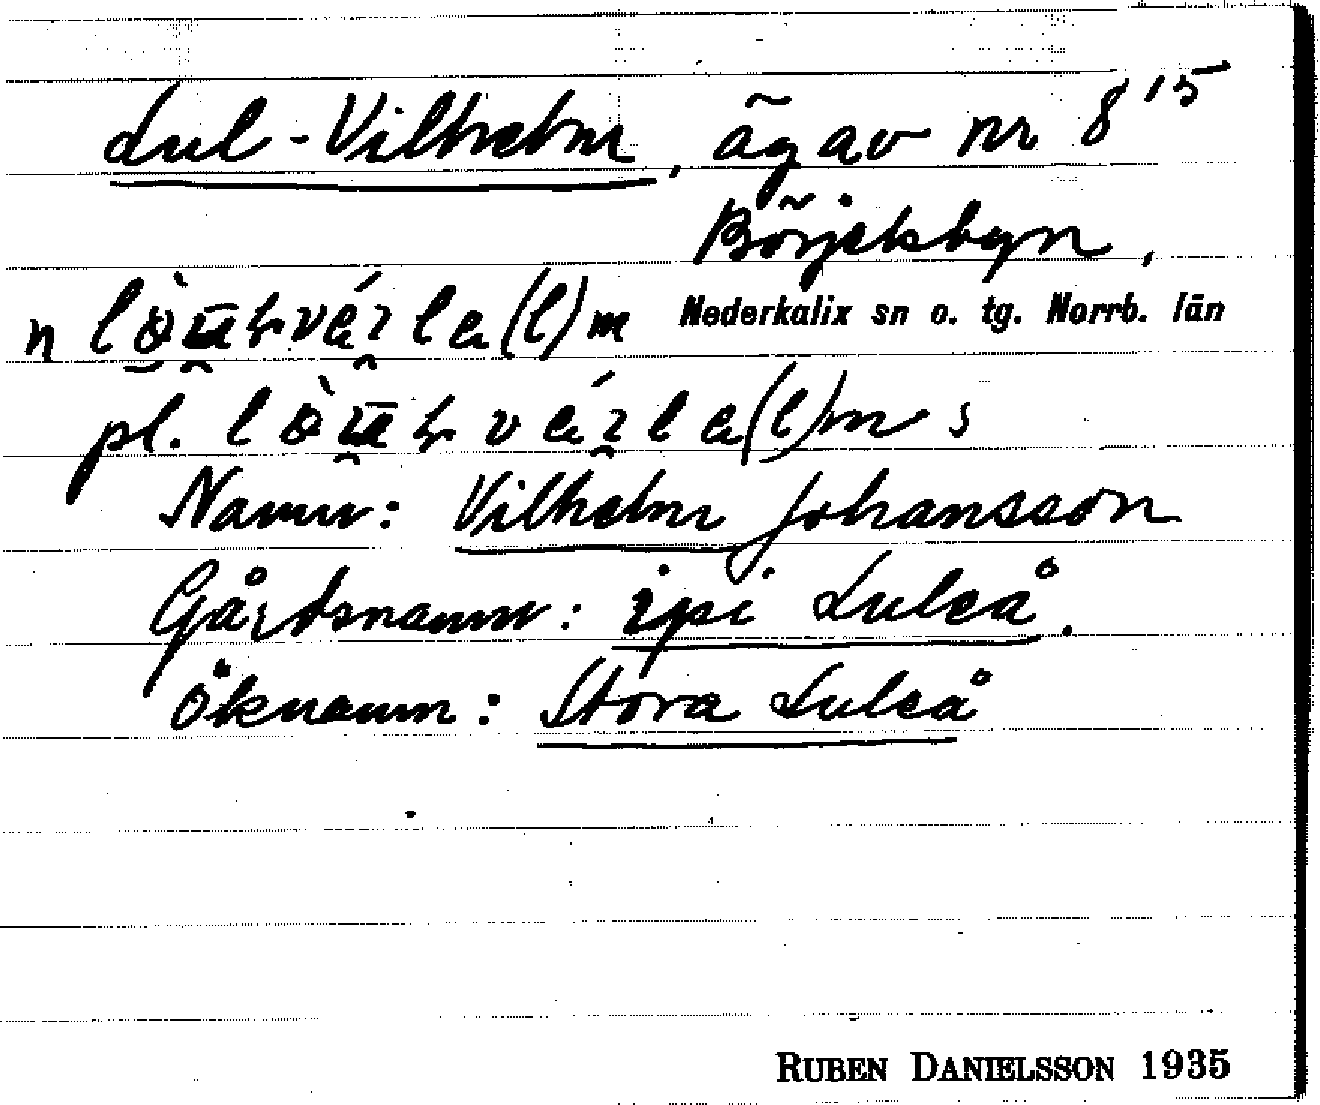 Lul-Vilhelm, äg av nr 8¹⁵
Börjelsbyn,
Nederkalix sn o. tg. Norrb. län
n
pl.
Namn: Vilhelm Johansson
Gårdsnamn: ipi Luleå.
Öknamn: Stora Luleå
RUBEN DANIELSSON 1935